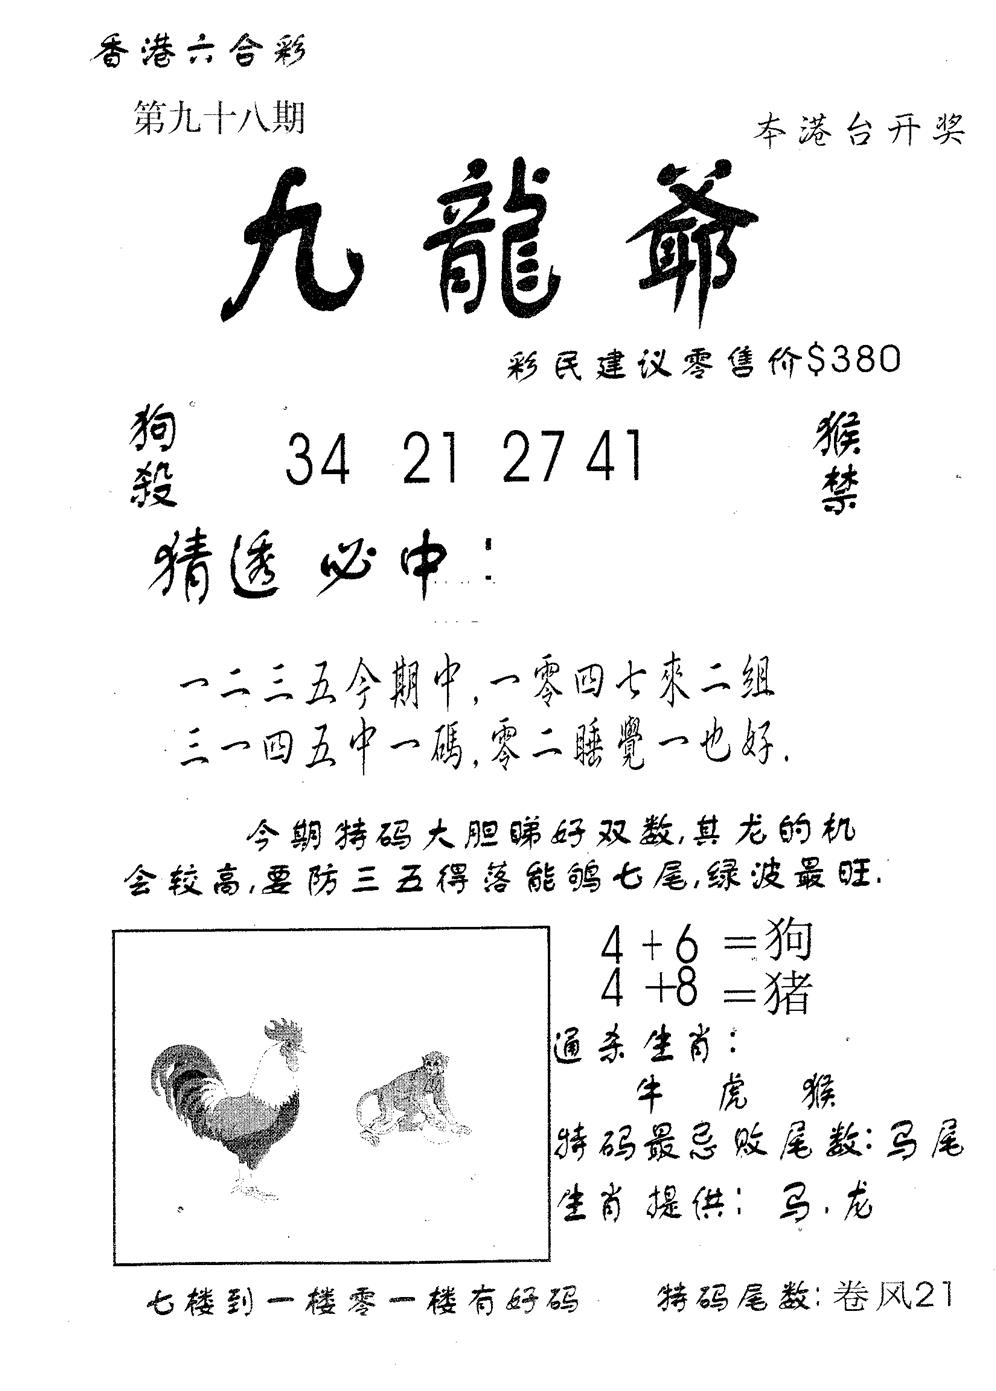 香港六合彩
第九十八期
本港台开奖
九龍爺
彩民建议零售价$380
狗殺
34 21 27 41
猴禁
猜透必中：
一二三五今期中,一零四七來二組
三一四五中一碼,零二睡覺一也好.
今期特码大胆睇好双数,其龙的机
会较高,要防三五得落能鸲七尾,绿波最旺.
4+6=狗
4+8=猪
通杀生肖：
牛 虎 猴
特码最忌败尾数：马尾
生肖提供：马.龙
七楼到一楼零一楼有好码 特码尾数：卷风21